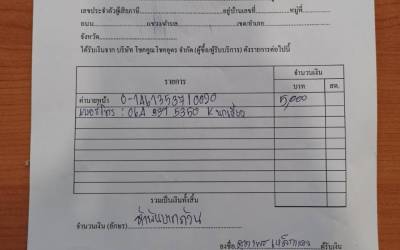 เลขประจำตัวผู้เสียภาษี อยู่บ้านเลขที่ หมู่ที่
ถนน แขวง/ตำบล เขต/อำเภอ
จังหวัด
ได้รับเงินจาก บริษัท โชคคูณโชคอุดร จำกัด (ผู้ซื้อ/ผู้รับบริการ) ดังรายการต่อไปนี้
รายการ จำนวนเงิน
บาท สต.
ค่านายหน้า 5,000
เบอร์โทร : 064
รวมเป็นเงินทั้งสิ้น
จำนวนเงิน (อักษร) ห้าพันบาทถ้วน
ลงชื่อ ผู้รับเงิน